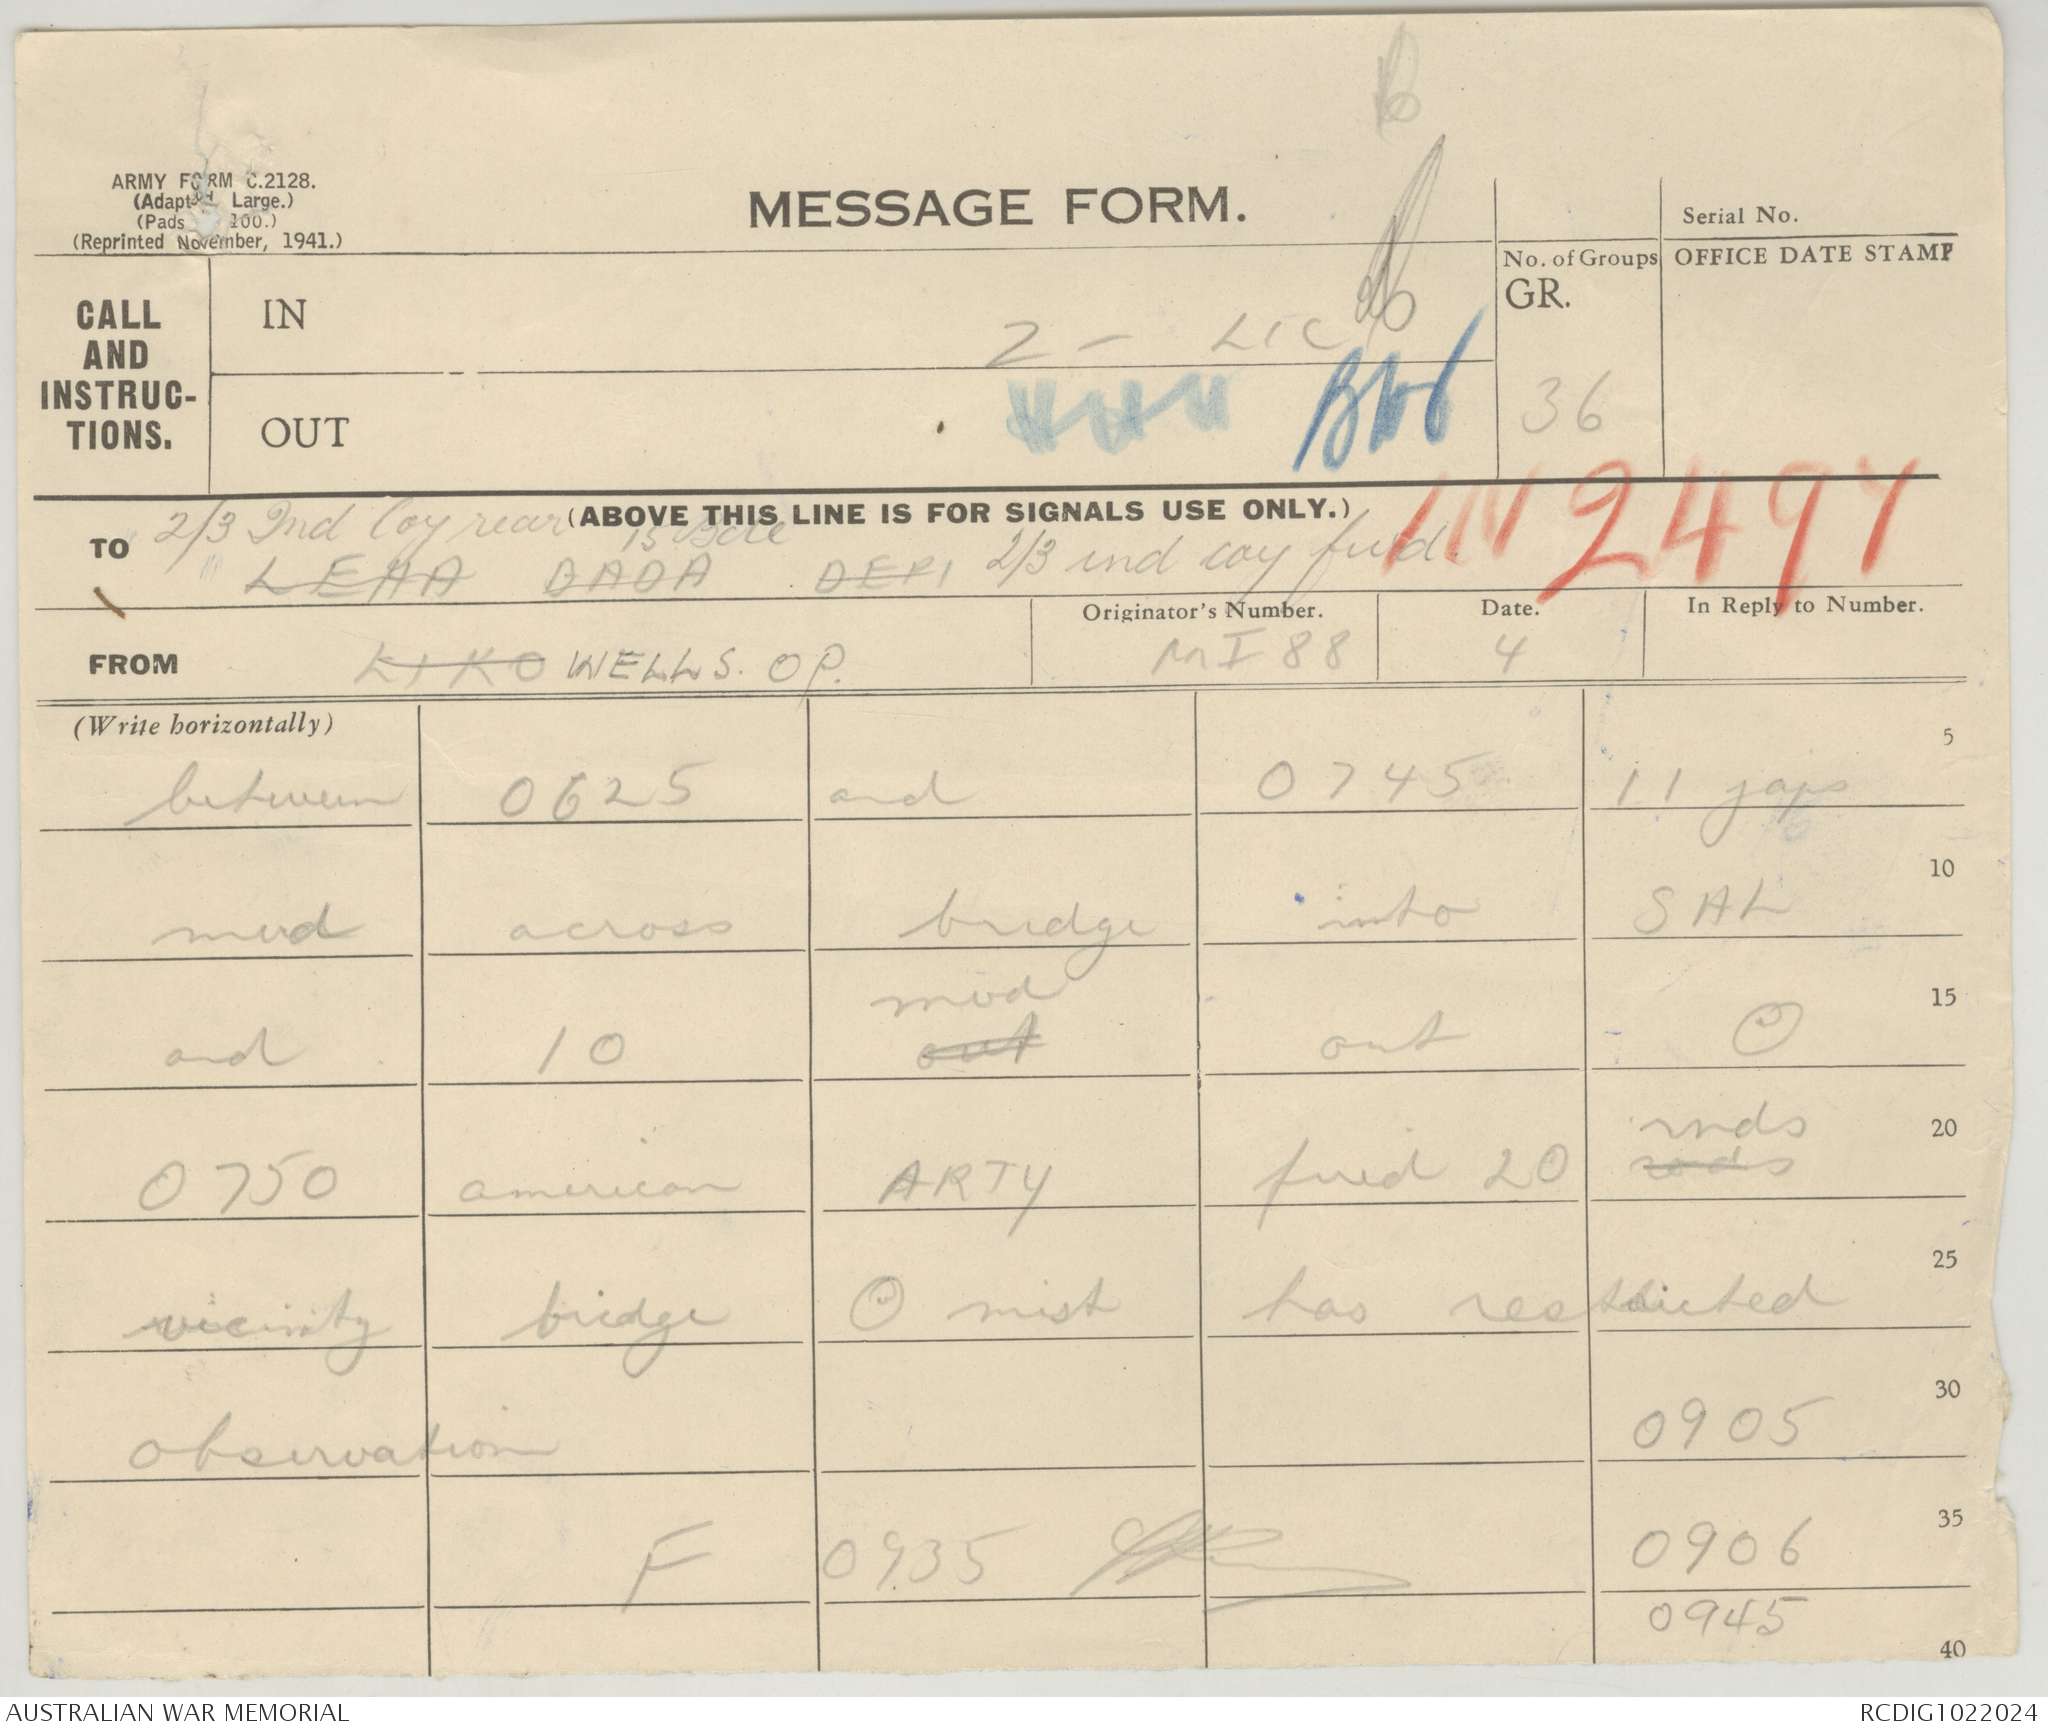 ARMY FORM C.2128.
(Adapted Large.)
(Pads 100.)
(Reprinted November, 1941.)
MESSAGE FORM.
Serial No.
CALL
AND
INSTRUC-
TIONS.
IN
Z - LIC
OUT
No. of Groups
GR.
36
OFFICE DATE STAMP
(ABOVE THIS LINE IS FOR SIGNALS USE ONLY.)
IN 2497
TO
2/3 Ind Coy rear 15 Bde
LEAA BADA DEPI 2/3 ind coy fwd
FROM
LIKO WELLS. OP.
Originator's Number.
MI 88
Date.
4
In Reply to Number.
(Write horizontally)
between 0625 and 0745 11 japs 5
mvd across bridge into SAL 10
mvd
and 10 out out O 15
rnds
0750 american ARTY fired 20 rods 20
vicinity bridge O mist has restricted 25
observation 0905 30
F 0935 0906 35
0945
40
AUSTRALIAN WAR MEMORIAL
RCDIG1022024